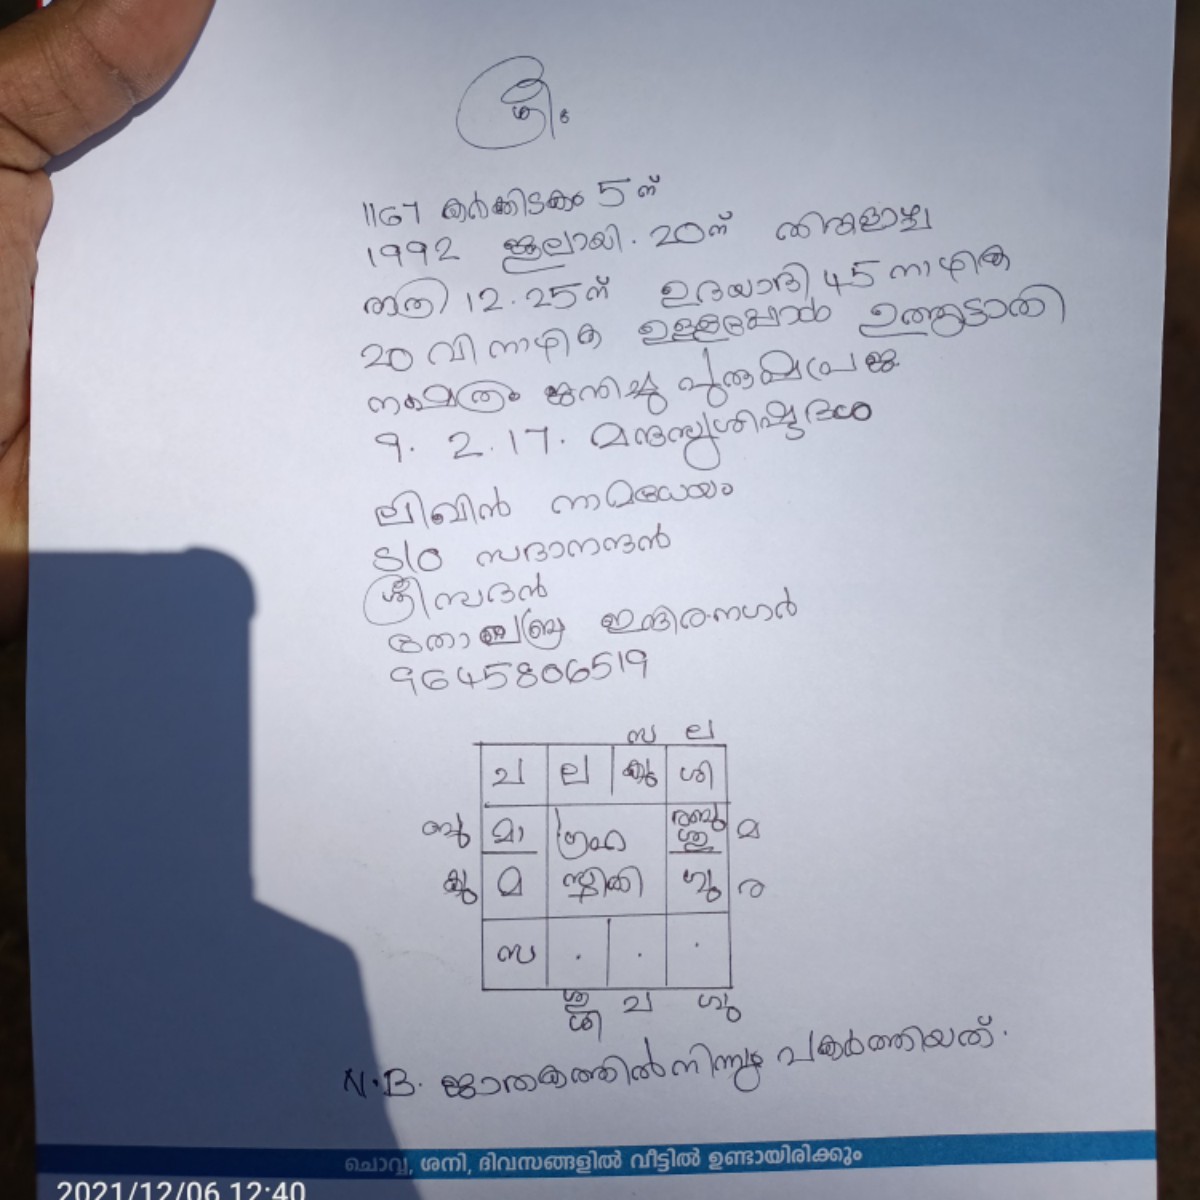 ശ്രീഃ
1167 കർക്കിടകം 5ന്
1992 ജൂലായി. 20ന് തിങ്കളാഴ്ച
രാത്രി 12.25ന് ഉദയാദി 45 നാഴിക
20 വിനാഴിക ഉള്ളപ്പോൾ ഉത്രട്ടാതി
നക്ഷത്രം ജനിച്ച പുരുഷപ്രജ
9. 2. 17.
ലിബിൻ നാമധേയം
S/O സദാനന്ദൻ
ശ്രീസദൻ
ഇന്ദിരനഗർ
9645806519
സ ല
ച ല കു ശി
ബു മാ ഗ്രഹ രബു ശു മ
കു മ സ്ഥിതി ഗു ര
സ . . .
ശു ശി ച ഗു
N.B. ജാതകത്തിൽനിന്നും പകർത്തിയത്.
ചൊവ്വ, ശനി, ദിവസങ്ങളിൽ വീട്ടിൽ ഉണ്ടായിരിക്കും
2021/12/06 12:40